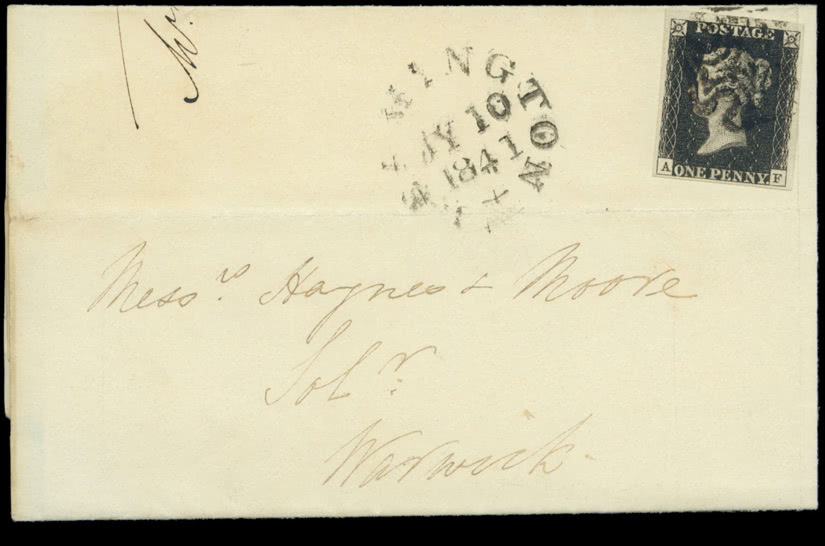 POSTAGE
A ONE PENNY. F
JY 10
1841
Mess.rs Haynes & Moore
Sol.r
Warwick